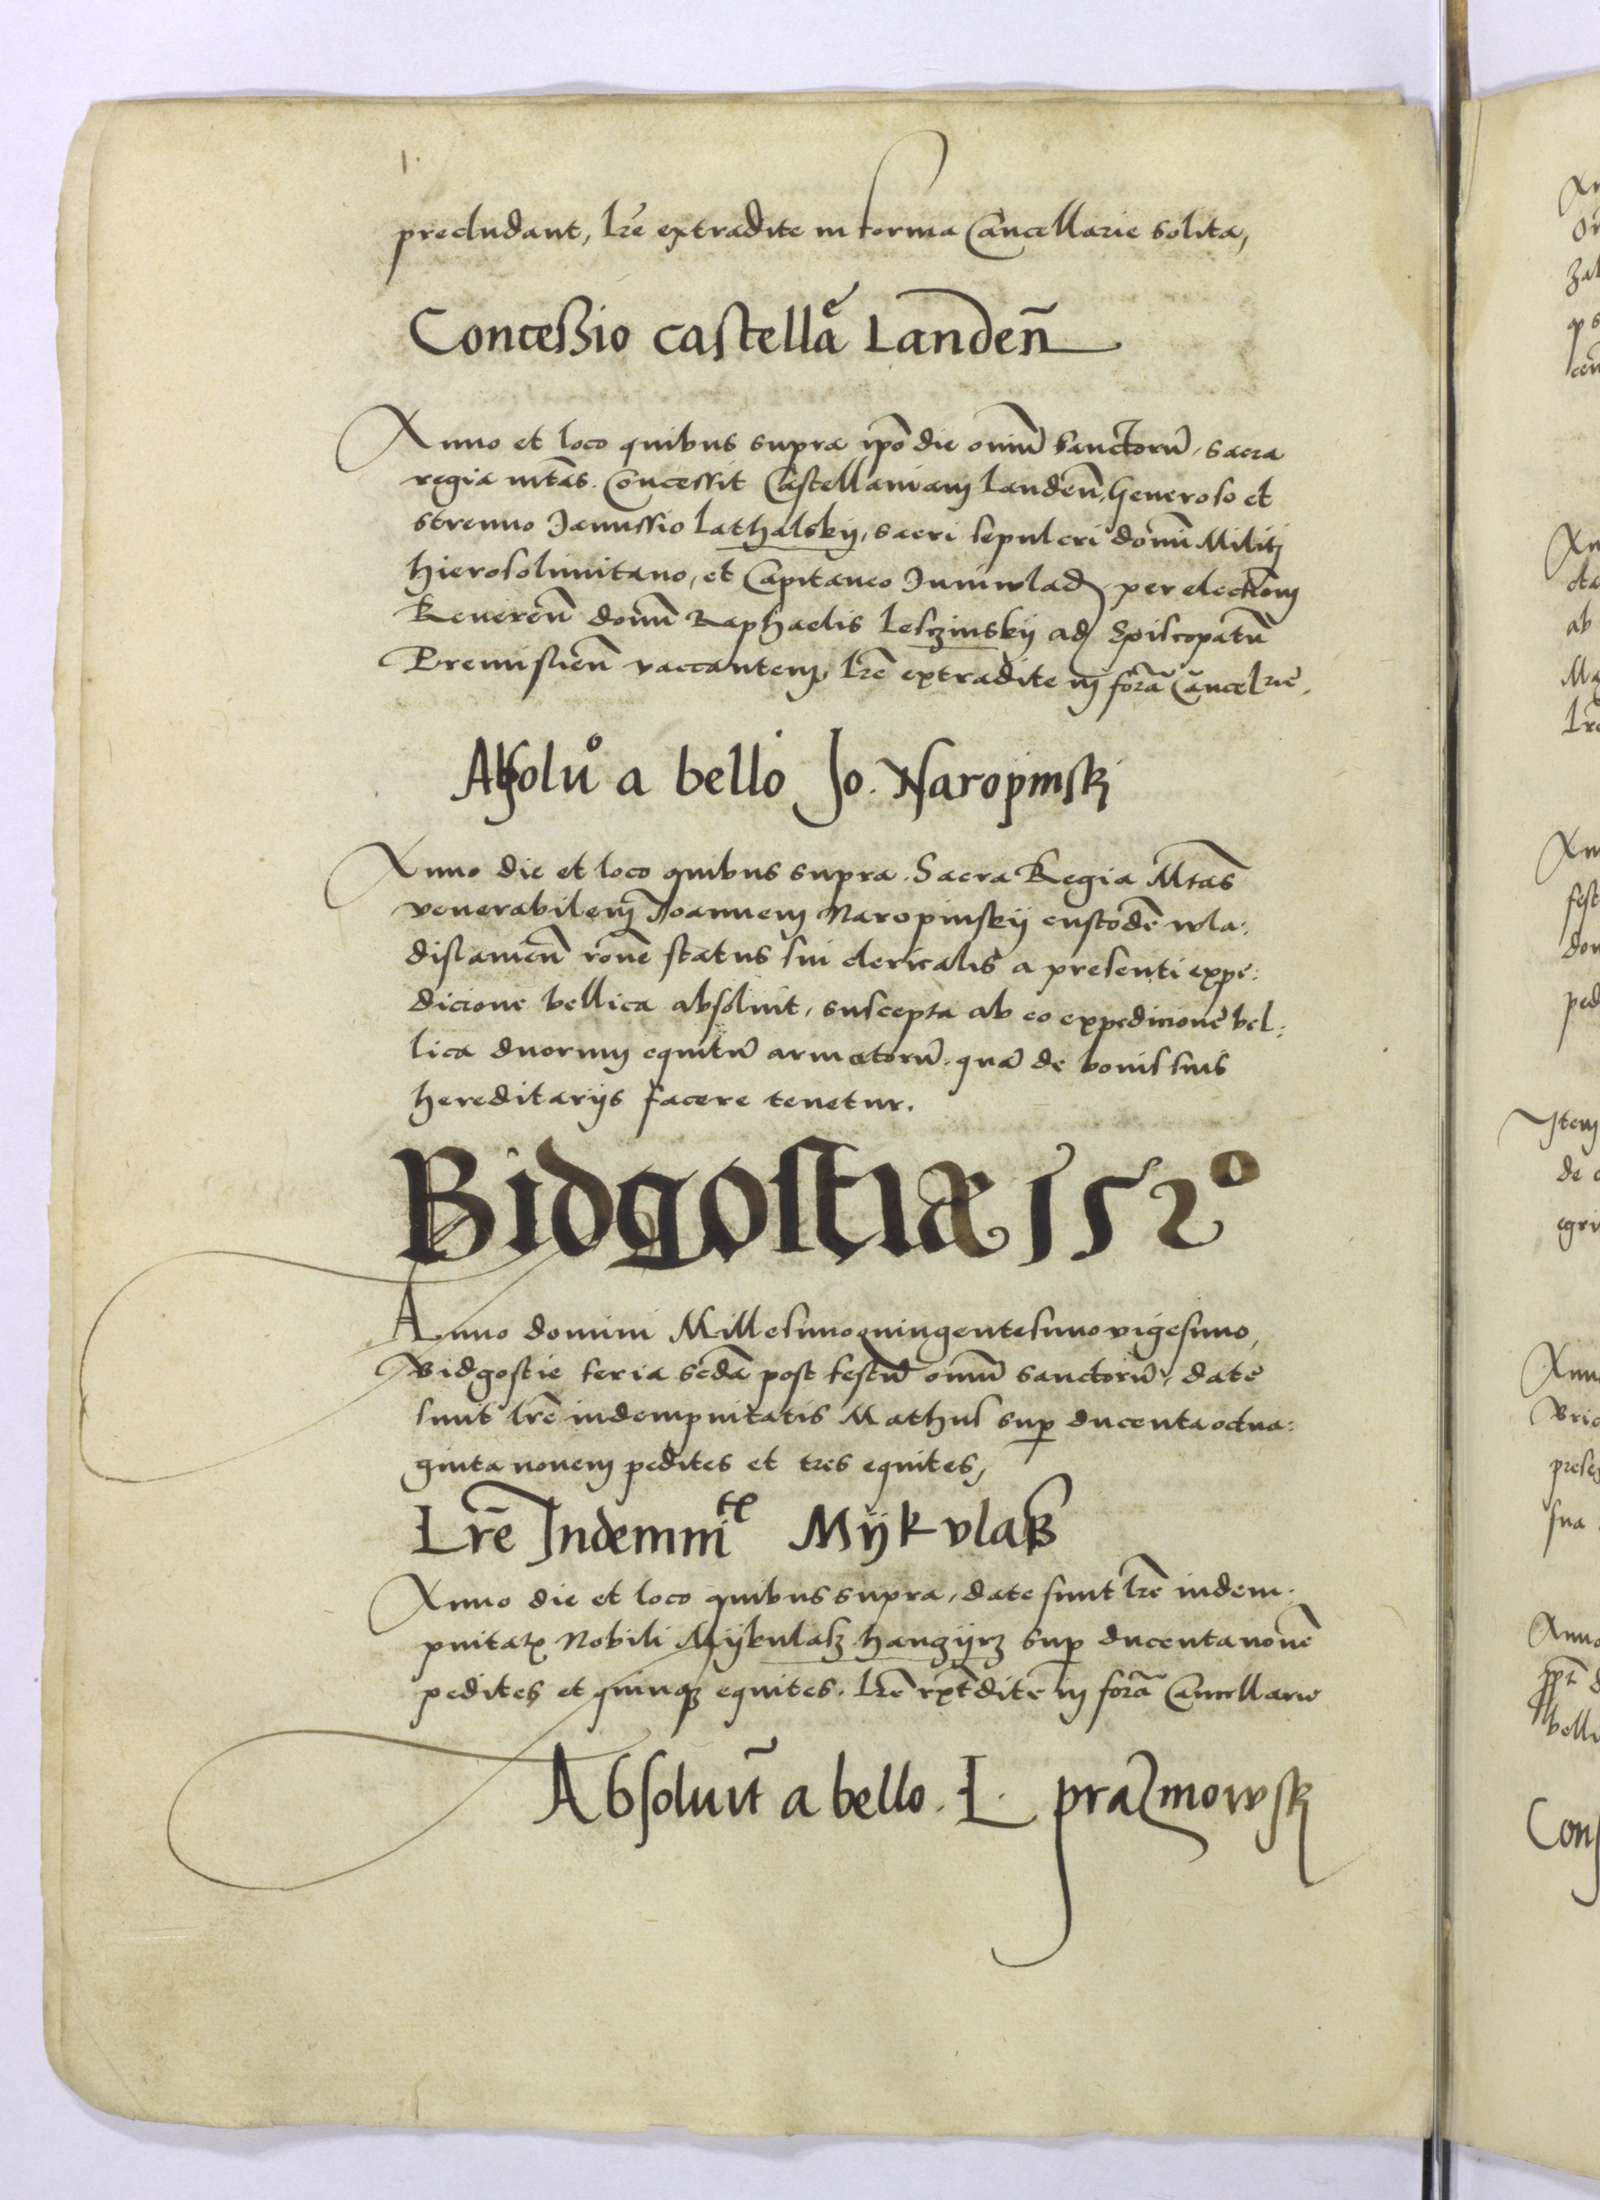 precludant, lr̃e extradite in forma Cancellarie solita,
Conceßio castellãe Landeñ
Anno et loco quibus supra ip̃o die om̃iũ sanctorũ, sacra
regia mt̃as. Concessit Castellaniam Landeñ, Generoso et
strenuo Janussio lathalskij, sacri sepulcri domĩ Militj
hierosolimitano, et Capitaneo Juniwlad, per election̄em
Reuereñ domĩ Raphaelis leszinskij ad Episcopatũ
Premislieñ vaccantem, lr̃e extradite in forã Cancelrie.
Absoluo a bello Jo. Naropinskj
Anno die et loco quibus supra. Sacra Regia Mt̃as
venerabilem Joannem Naropinskij custodẽ wla:
dislauieñ rõne status sui clericalis a presenti expe:
dicione bellica absoluit, suscepta ab eo expedicionẽ bel:
lica duorum equitũ armatorũ. quã de bonis suis
hereditarijs facere tenetur.
Bidgostiæ 1520
Anno domini Millesimoquingentesimovigesimo,
Bidgostie feria sc̃da post festũ om̃iũ sanctorũ, date
sunt lr̃e indempnitatis Mathus sup ducenta octua:
ginta novem pedites et tres equites,
Lr̃e Indemnitℯ Mijkvlaß
Anno die et loco quibus supra, date sunt lr̃e indem-
pnitatℯ Nobili Mijkulasz hangijrz sup ducenta nouẽ
pedites et quinqȝ equites. lr̃e extr̃dite in forã Cancellarie
Absoluit̃ a bello. L. prazmowskj
1.